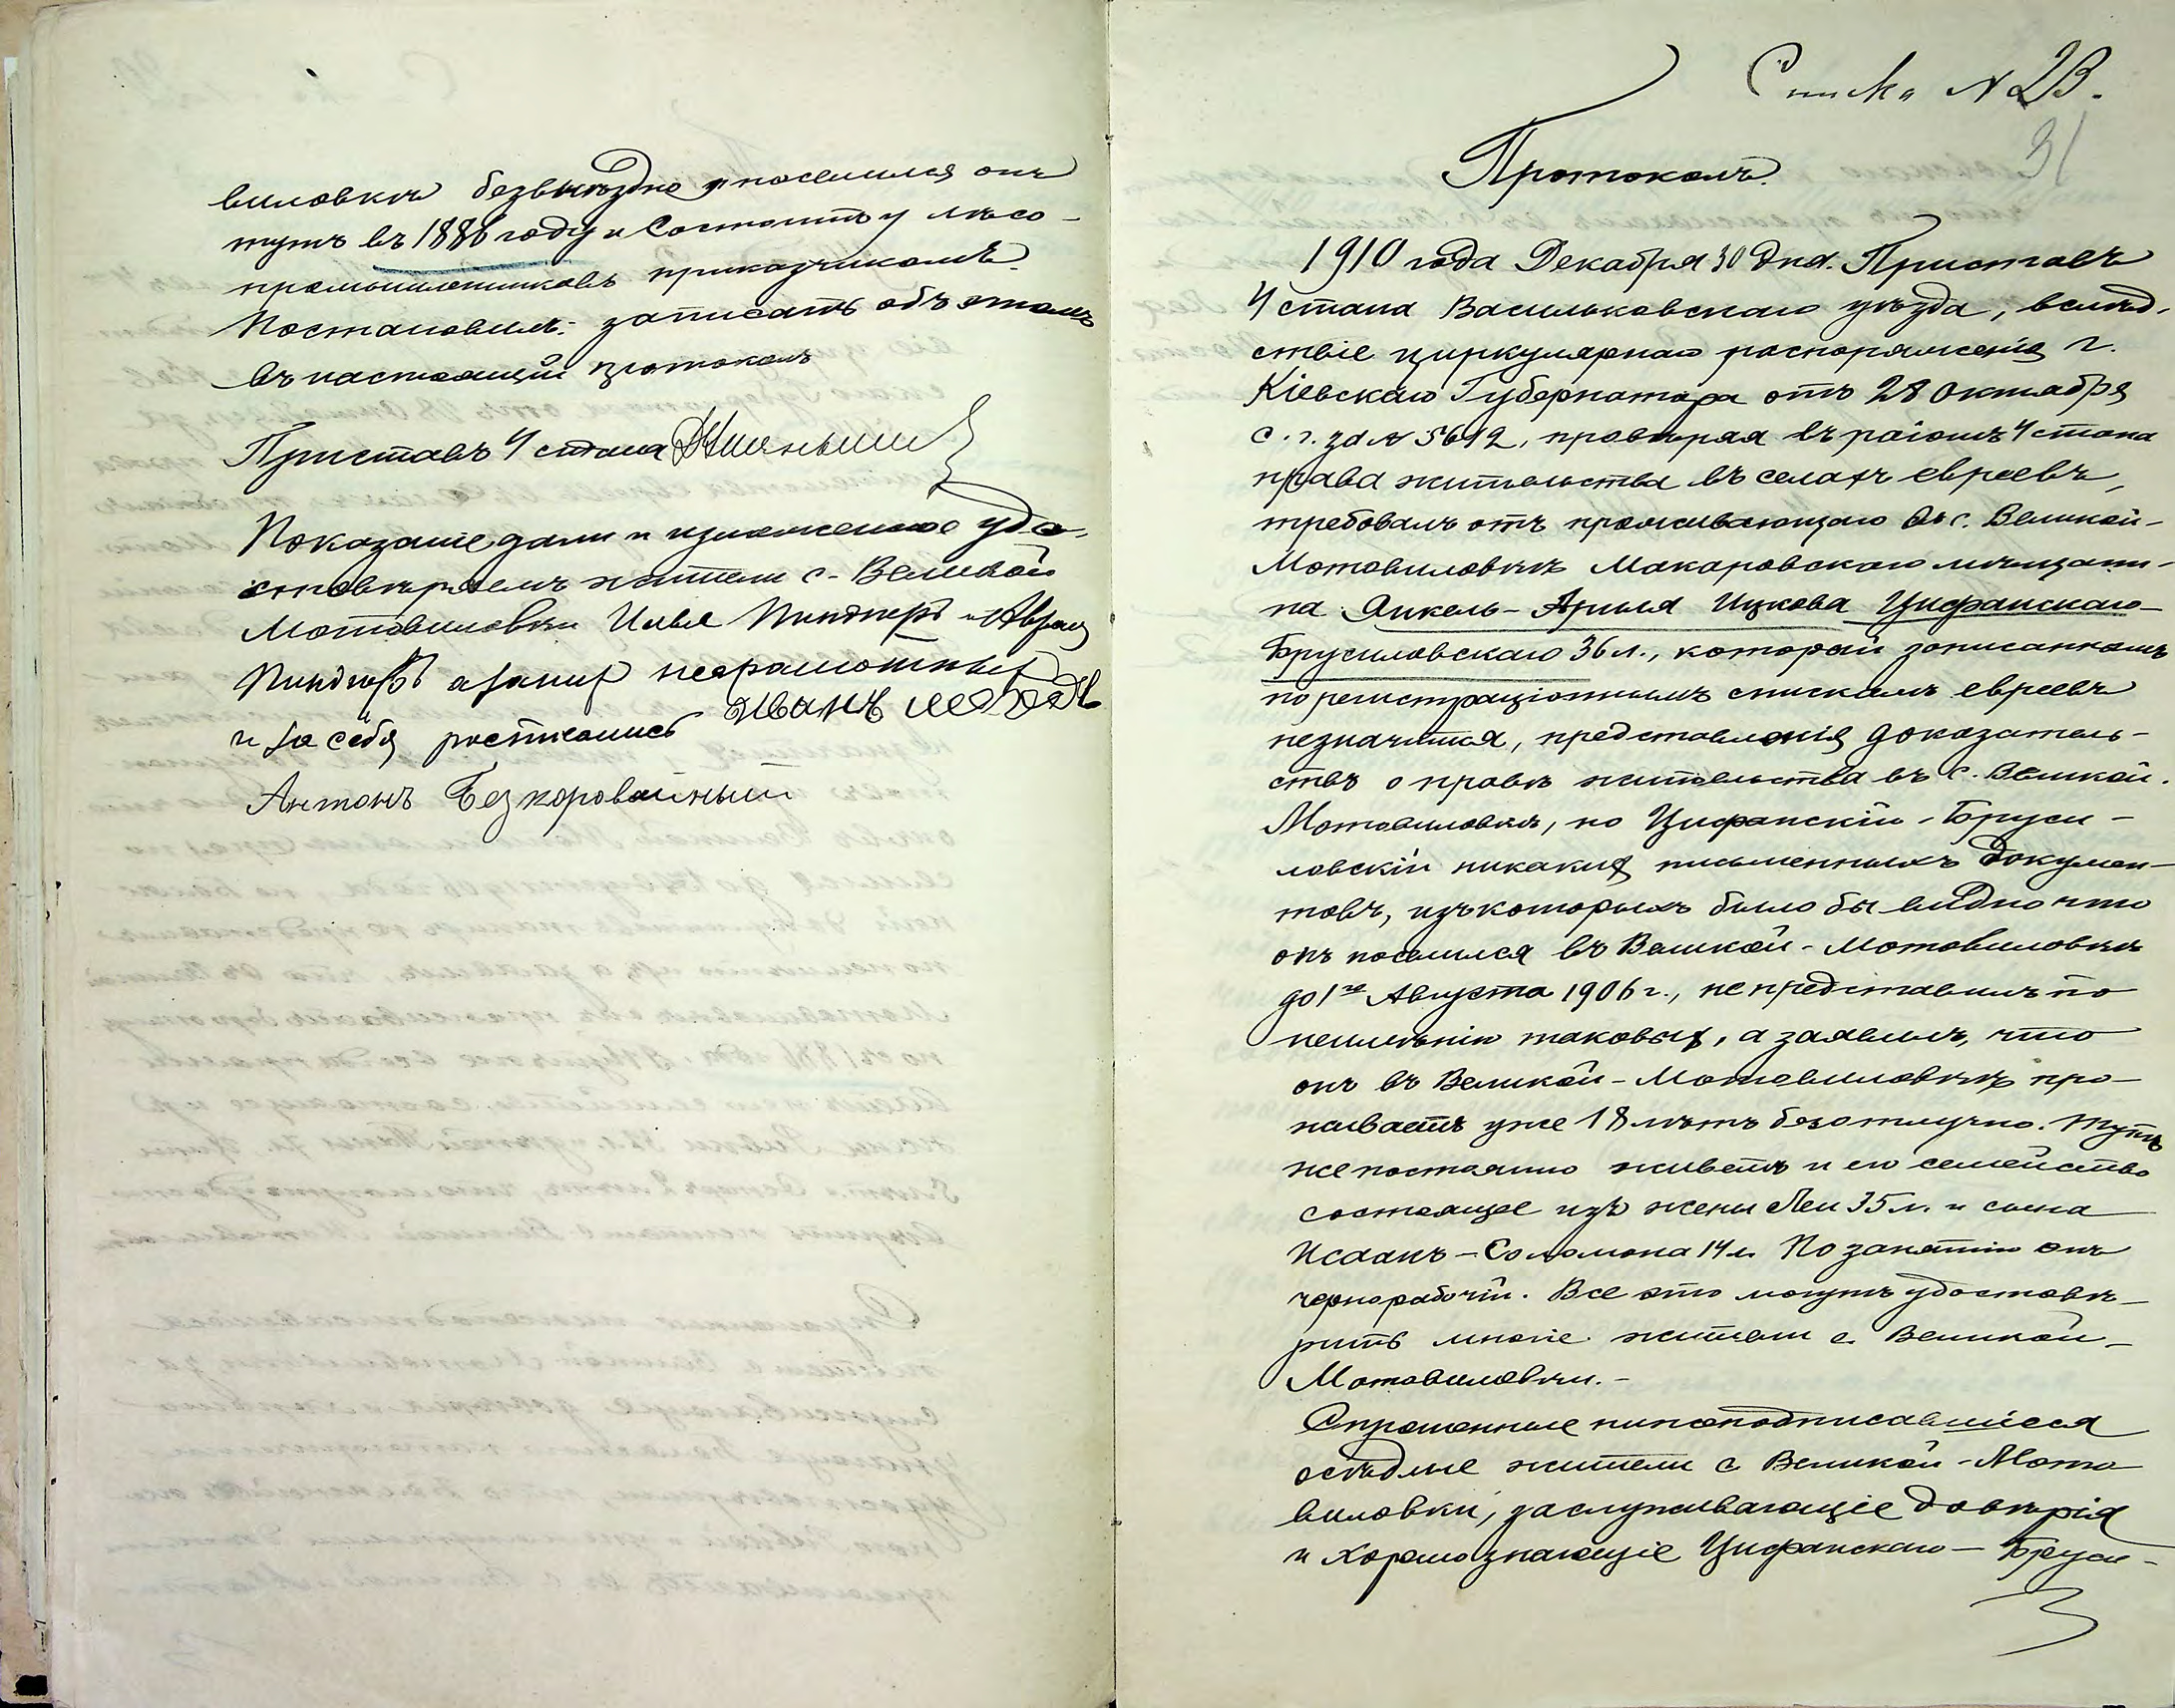 виловкѣ безвыѣздно и поселился онъ
тутъ въ 1886 году и состоитъ у лѣсо-
промышленниковъ приказчикомъ.
Постановилъ: записать объ этомъ
въ настоящій протоколъ
Приставъ 4 стана
Показаніе дали и изложенное удо-
стовѣряемъ жители с. Великой
Мотовиловки Илья
неграмотный
и за себя росписались Иванъ
Антонъ Безкоровайный
Списка № 23.
31
Протоколъ.
1910 года Декабря 30 дня. Приставъ
4 стана Васильковскаго уѣзда, вслѣд-
ствіе циркулярнаго распоряженія г.
Кіевскаго Губернатора отъ 28 Октября
с. г. за № 5612, провѣряя въ раіонѣ 4 стана
права жительства въ селахъ евреевъ,
требовалъ отъ проживающаго въ с. Великой-
Мотовиловкѣ Макаровскаго мѣщани-
на Янкель-Арыля Ицкова Цифанскаго-
Брусиловскаго 36 л., который записаннымъ
по регистраціоннымъ спискамъ евреевъ
незначится, представленія доказатель-
ствъ о правѣ жительства въ с. Великой-
Мотовиловкѣ, но Цифанскій-Бруси-
ловскій никакихъ письменныхъ докумен-
товъ, изъ которыхъ было бы видно что
онъ поселился въ Великой-Мотовиловкѣ
до 1го Августа 1906 г., не представилъ по
неимѣнію таковыхъ, а заявилъ, что
онъ въ Великой-Мотовиловкѣ про-
живаетъ уже 18 лѣтъ безотлучно. Тутъ
же постоянно живетъ и его семейство
состоящее изъ жены Леи 35 л. и сына
Исаакъ-Соломона 14 л. По занятію онъ
чернорабочій. Все это могутъ удостовѣ-
рить многіе жители с. Великой-
Мотовиловки.-
Опрошенные нижеподписавшіеся
осѣдлые жители с. Великой-Мото
виловки, заслуживающіе довѣрія
и хорошо знающіе Цифанскаго-Бруси-